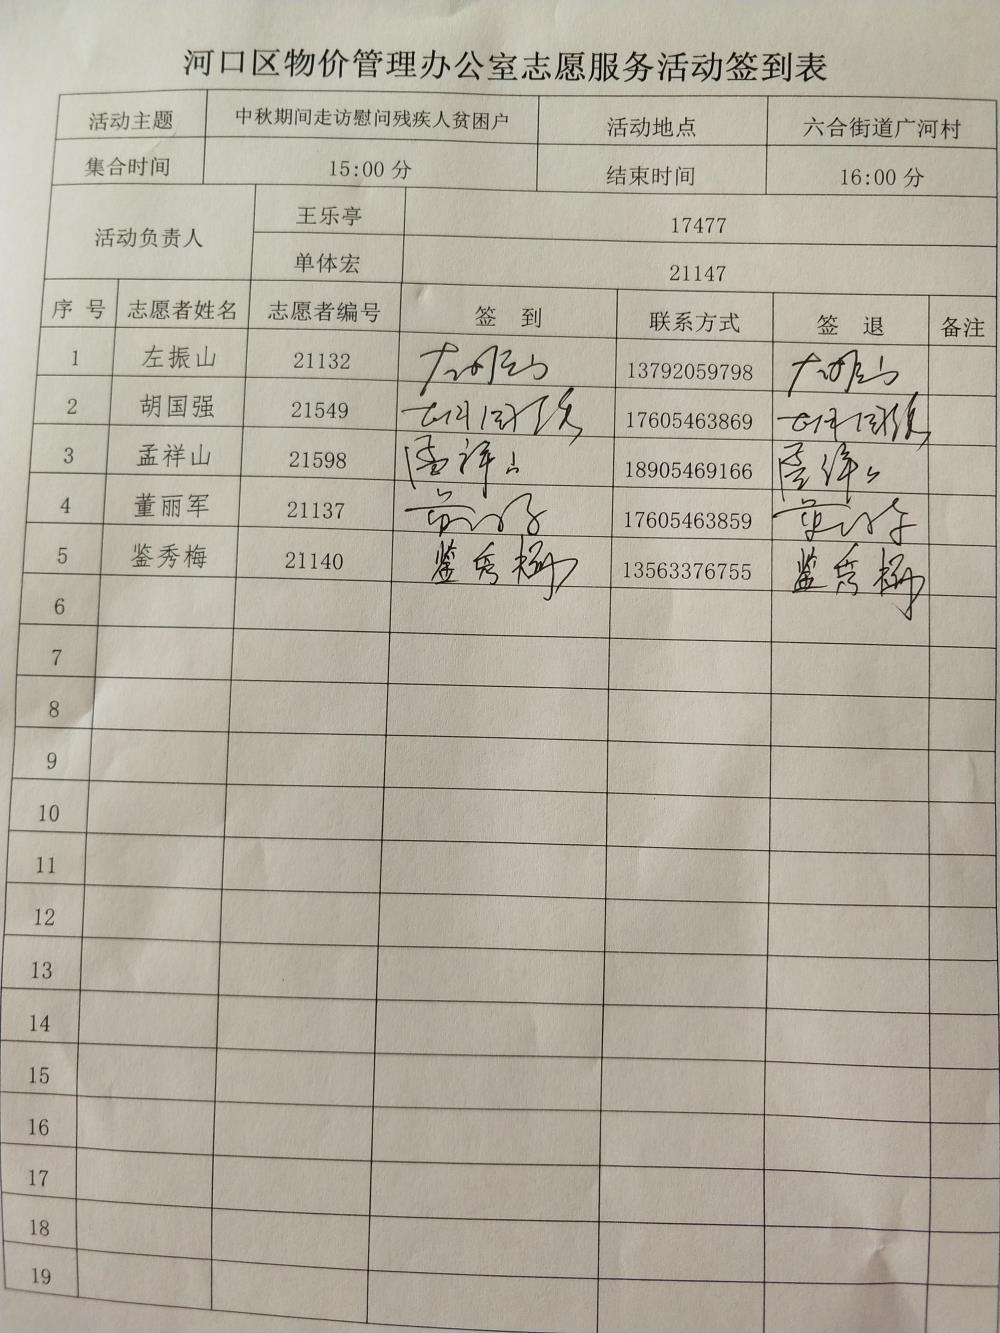 河口区物价管理办公室志愿服务活动签到表
活动主题 中秋期间走访慰问残疾人贫困户 活动地点 六合街道广河村
集合时间 15:00 分 结束时间 16:00 分
活动负责人 王乐亭 17477
单体宏 21147
序 号 志愿者姓名 志愿者编号 签 到 联系方式 签 退 备注
1 左振山 21132 左振山 13792059798 左振山
2 胡国强 21549 胡国强 17605463869 胡国强
3 孟祥山 21598 孟祥山 18905469166 孟祥山
4 董丽军 21137 董丽军 17605463859 董丽军
5 鉴秀梅 21140 鉴秀梅 13563376755 鉴秀梅
6
7
8
9
10
11
12
13
14
15
16
17
18
19